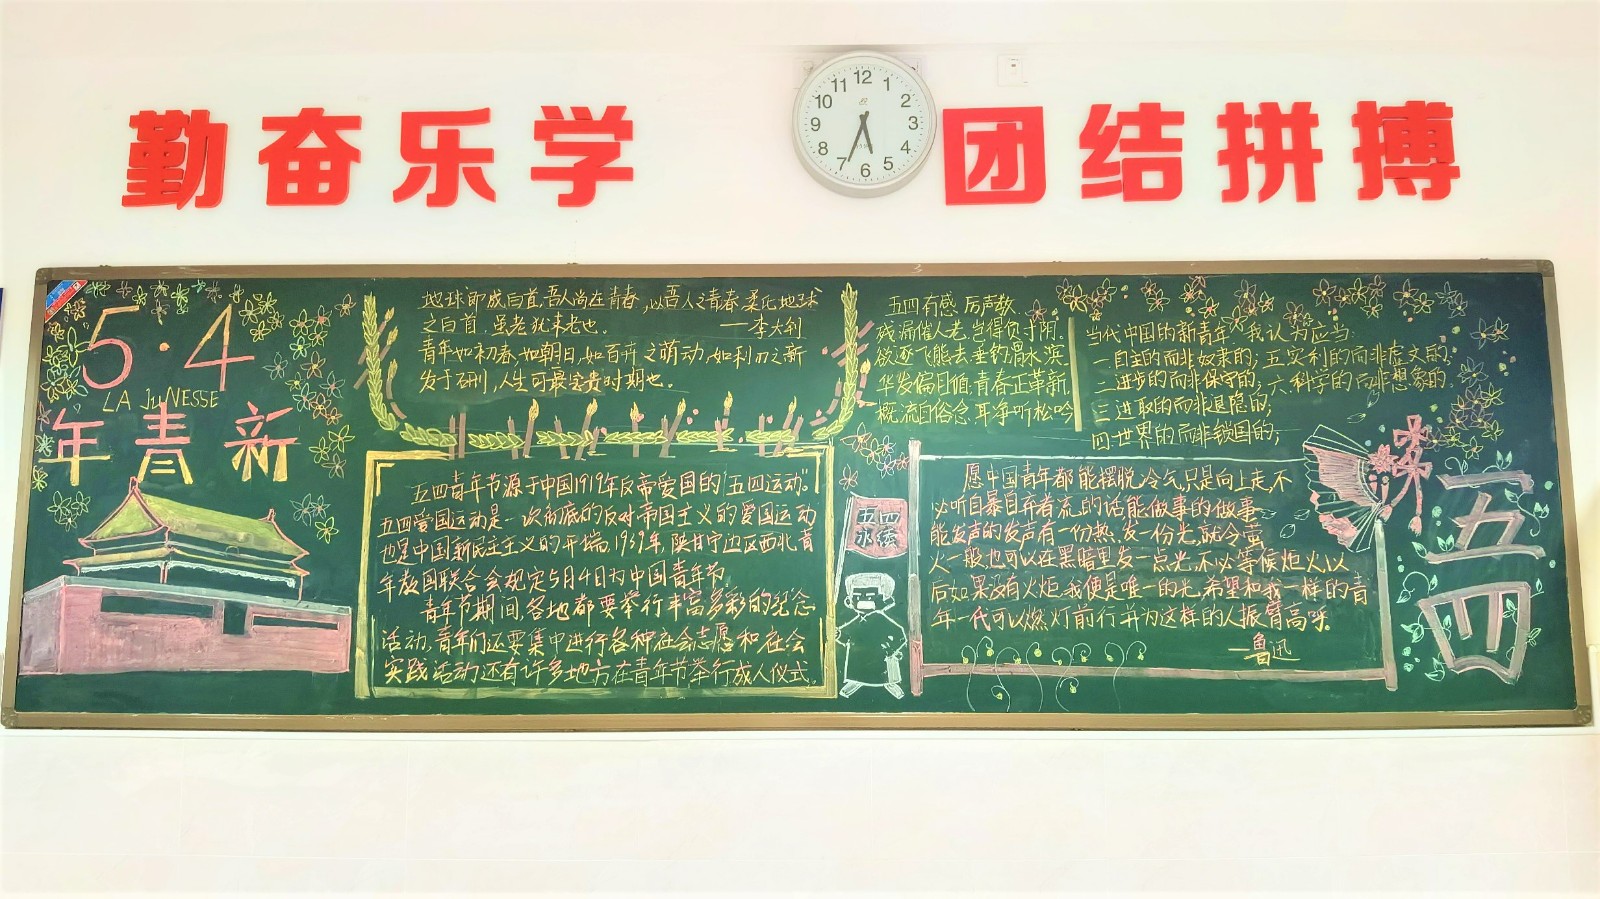 勤奋乐学
团结拼搏
12
1
2
3
4
5
6
7
8
9
10
11
5·4
LA JuNESSE
年青新
地球即成白首,吾人尚在青春,以吾人之青春柔化地球
之白首,虽老犹未老也。
——李大钊
青年如初春,如朝日,如百卉之萌动,如利刃之新
发于硎,人生可最宝贵时期也。
五四青年节源于中国1919年反帝爱国的"五四运动"
五四爱国运动是一次彻底的反对帝国主义的爱国运动
也是中国新民主主义的开端。1939年,陕甘宁边区西北青
年救国联合会规定5月4日为中国青年节。
青年节期间,各地都要举行丰富多彩的纪念
活动,青年们还要集中进行各种社会志愿和社会
实践活动还有许多地方在青年节举行成人仪式。
五四有感 厉声教
残漏催人老,岂得负寸阴。
欲逐飞熊去,垂钓渭水滨
华发偏日值,青春正革新
概流自俗念,耳净听松吟
当代中国的新青年,我认为应当:
一自主的而非奴隶的;五实利的而非虚文的
二进步的而非保守的;六科学的而非想象的
三进取的而非退隐的;
四世界的而非锁国的;
五四
永续
愿中国青年都能摆脱冷气,只是向上走,不
必听自暴自弃者流的话能做事的做事
能发声的发声有一份热,发一份光,就令萤
火一般也可以在黑暗里发一点光,不必等候炬火,以
后如果没有火炬,我便是唯一的光,希望和我一样的青
年一代可以燃灯前行并为这样的人振臂高呼
—鲁迅
五四